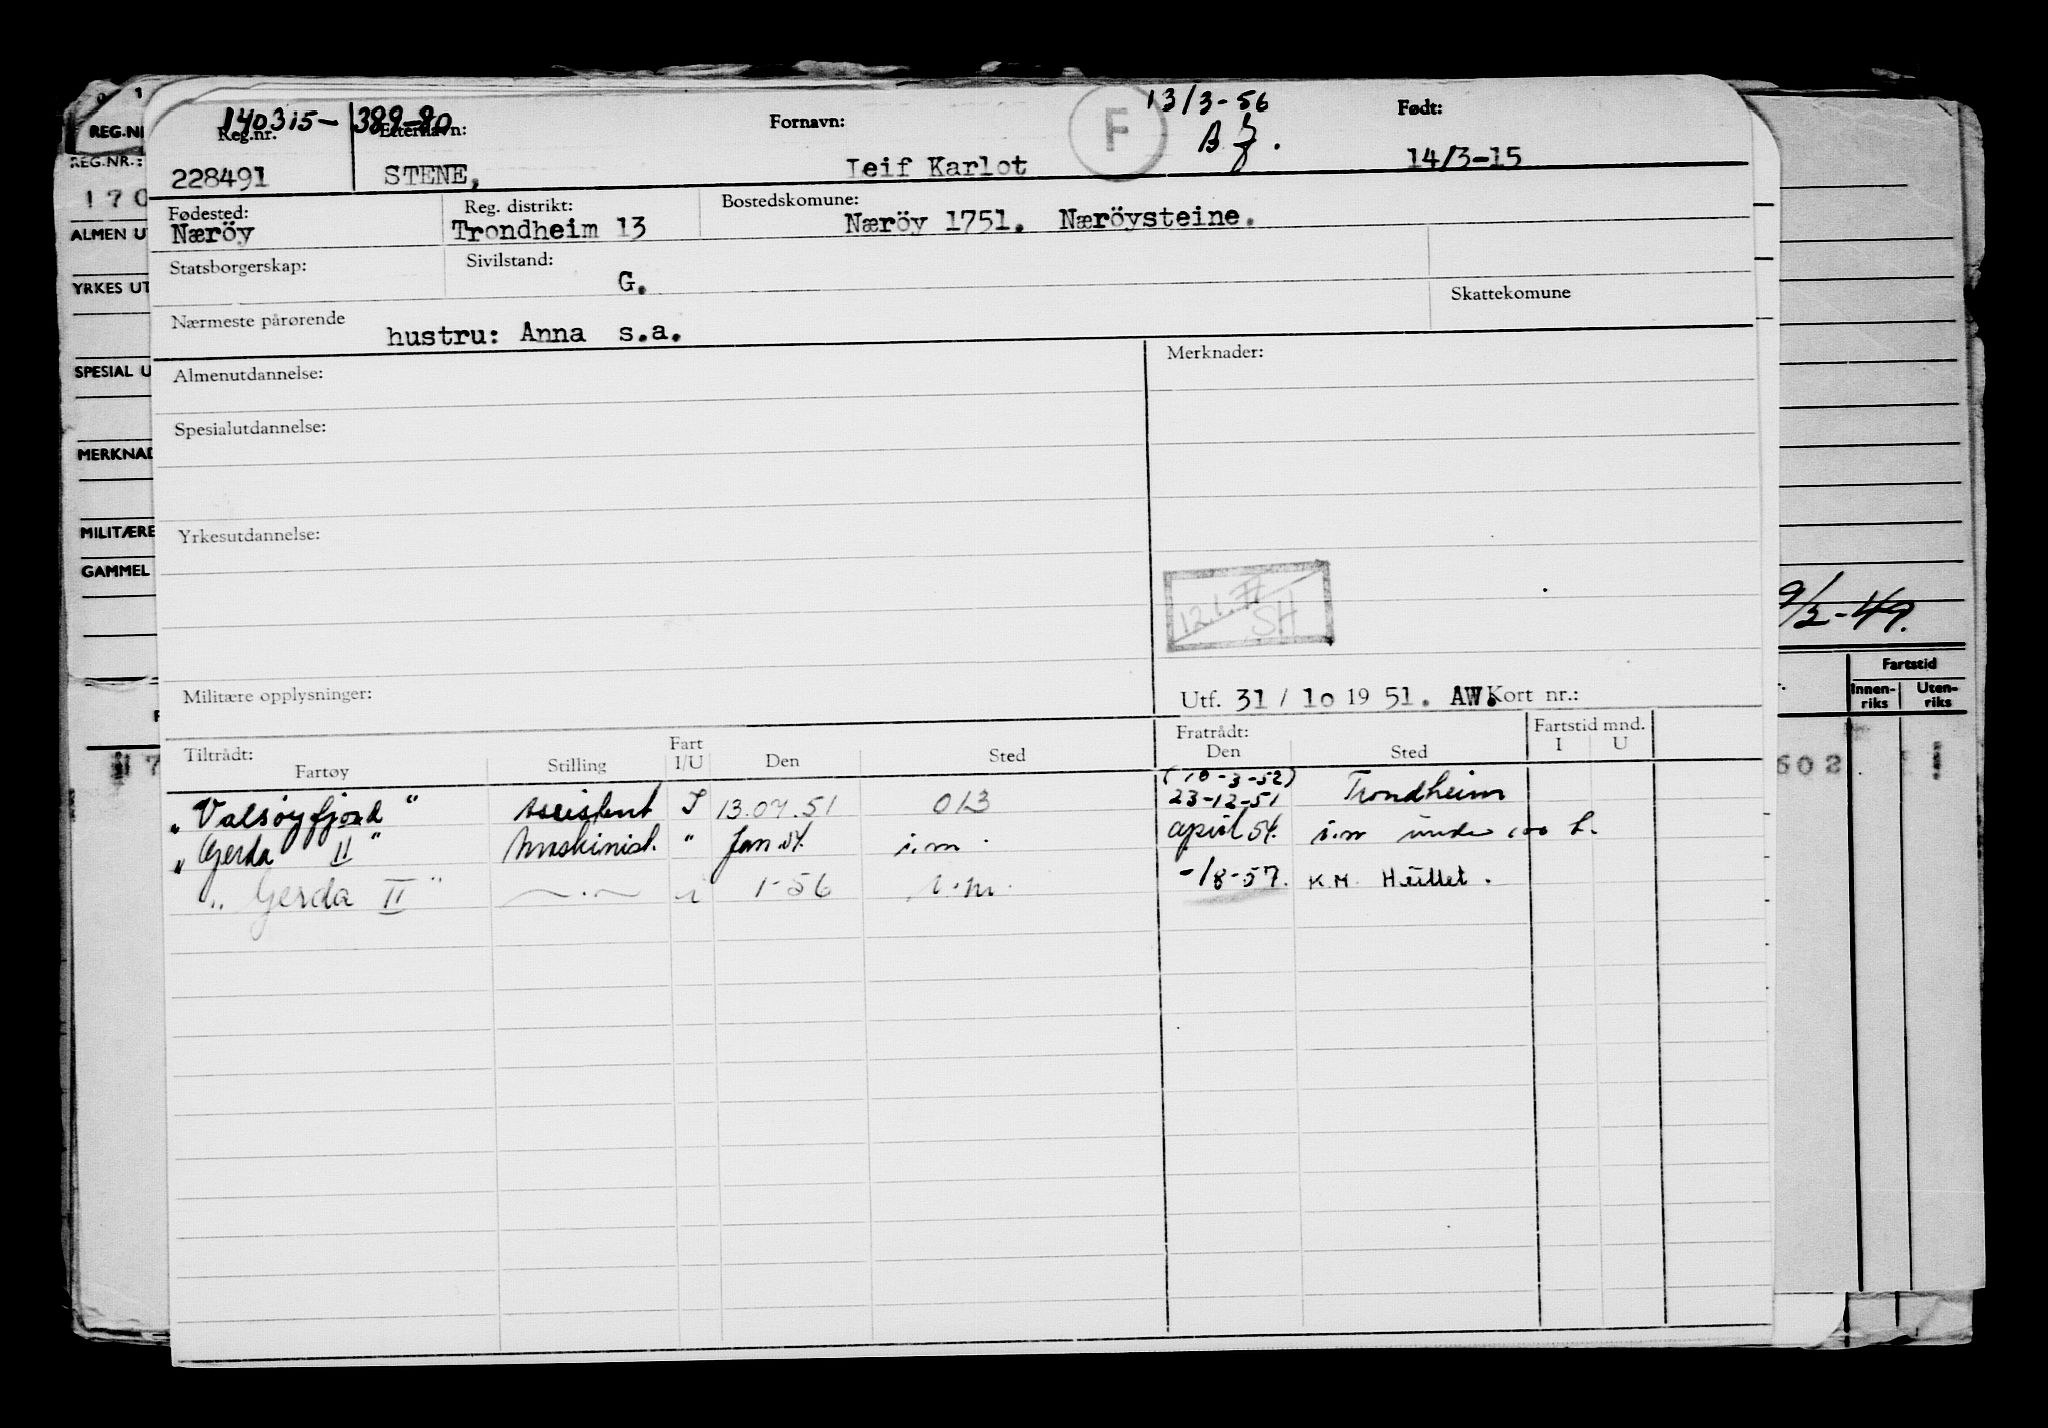 140315-38990 13/3-56
Reg.nr. Etternavn: Fornavn: F Født:
228491 STENE, Leif Karlot 14/3-15
Fødested: Reg. distrikt: Bostedskomune:
Næröy Trondheim 13 Næröy 1751. Næröysteine.
Statsborgerskap: Sivilstand: G.
Skattekomune
Nærmeste pårørende hustru: Anna s.a.
Almenutdannelse: Merknader:
Spesialutdannelse:
Yrkesutdannelse:
SH
Militære opplysninger: Utf. 31 / 10 19 51. AW. Kort nr.:
Tiltrådt: Fratrådt: Fartstid mnd.
Fartøy Stilling Fart I/U Den Sted Den Sted I U
(10-3-52)
"Valsöyfjord" Assistent I 13.07.51 013 23-12-51 Trondheim
"Gerda II" Maskinist. " Jan 54. i.m. april 54. i.m under 100 b.
"Gerda II" —·— i 1-56 i.m. -/8-57. K.M. Hullet.
REG.NR
REG.NR.:
170
ALMEN U
YRKES UT
SPESIAL U
MERKNAD
MILITÆRE
GAMMEL
9/2-49.
Fartstid
Innen-riks Uten-riks
602